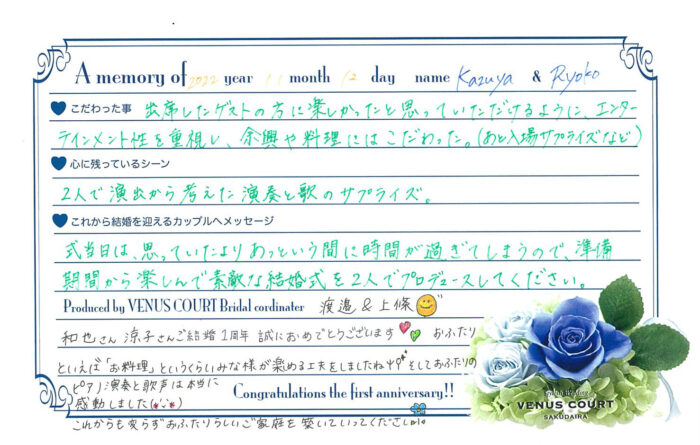 A memory of 2022 year 11 month 12 day name Kazuya & Ryoko
こだわった事 出席したゲストの方に楽しかったと思っていただけるように、エンター
テインメント性を重視し、余興や料理にはこだわった。(あと入場サプライズなど)
心に残っているシーン
2人で演出から考えた演奏と歌のサプライズ。
これから結婚を迎えるカップルへメッセージ
式当日は、思っていたよりあっという間に時間が過ぎてしまうので、準備
期間から楽しんで素敵な結婚式を2人でプロデュースしてください。
Produced by VENUS COURT Bridal cordinater 渡邉&上條
和也さん 涼子さんご結婚1周年 誠におめでとうございます おふたり
といえば「お料理」というくらいみな様が楽める工夫をしましたね そしておふたりの
ピアノ演奏と歌声は本当に
感動しました
Congratulations the first anniversary!!
これからも変らずおふたりらしいご家庭を築いていってください
VENUS COURT
SAKUDAIRA